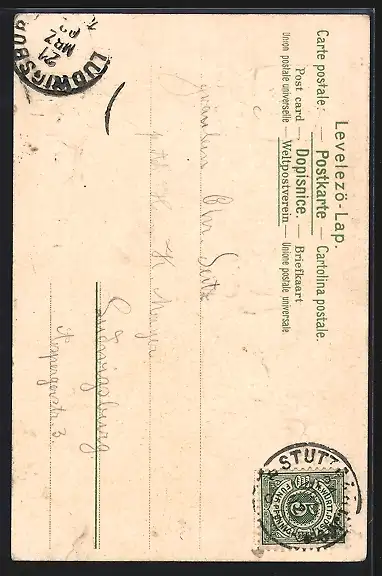 Levelezö-Lap.
Carte postale. — Postkarte — Cartolina postale.
Post card — Dopisnice. — Briefkaart
Union postale universelle — Weltpostverein — Unione postale universale
Fräulein Chr. Seitz
Ludwigsburg
Aspergerstr. 3
LUDWIGSBURG
21
MRZ
STUTTG
5